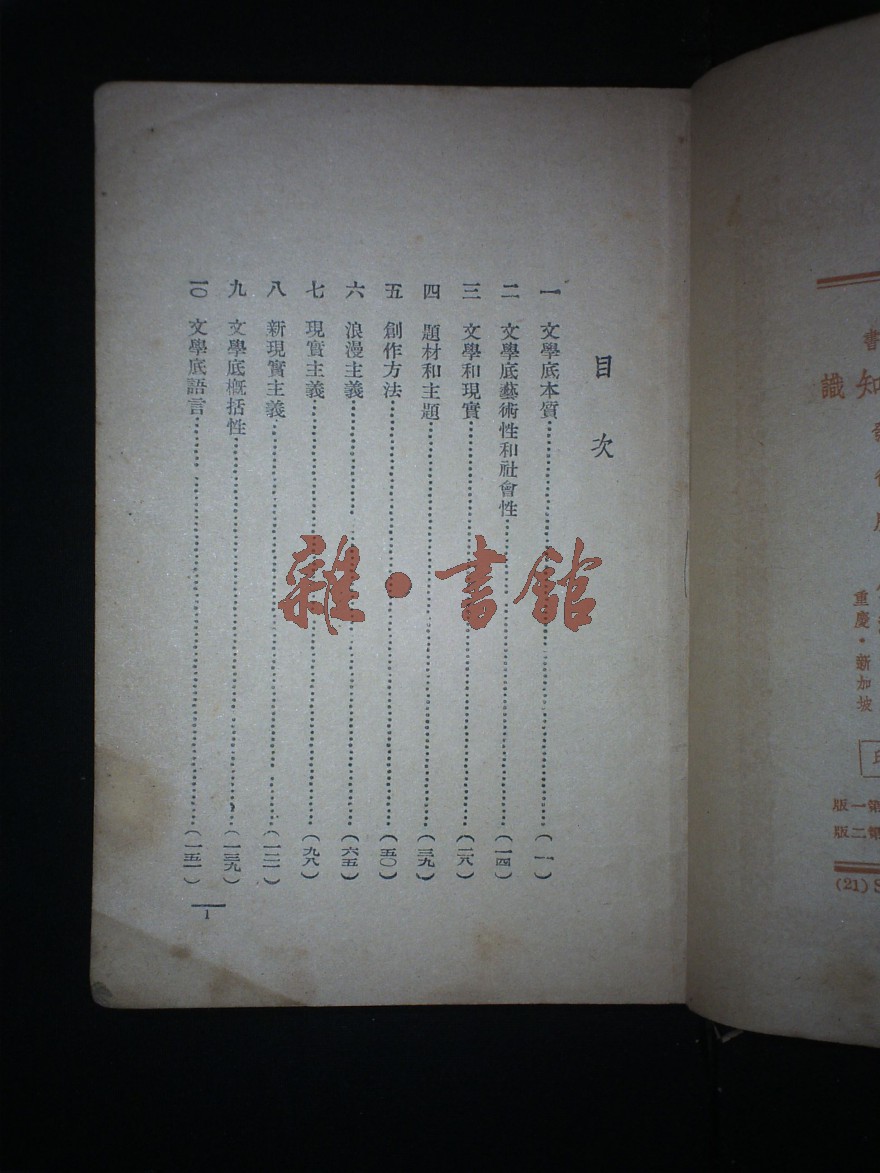 目次
一　文學底本質……（一）
二　文學底藝術性和社會性……（一四）
三　文學和現實……（二八）
四　題材和主題……（三九）
五　創作方法……（五〇）
六　浪漫主義……（六五）
七　現實主義……（九八）
八　新現實主義……（一二一）
九　文學底概括性……（一三九）
一〇　文學底語言……（一五一）
1
雜·書館
書
知識
重慶·新加坡
第一版
第二版
(21)